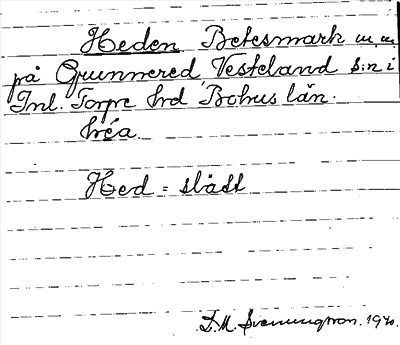 Heden Betesmark m.m.
på Grunnered, Vesteland s:n i
Inl. Torpe hrd Bohus län.
héa.
Hed = slätt
D.M. Svenungsson. 1940.